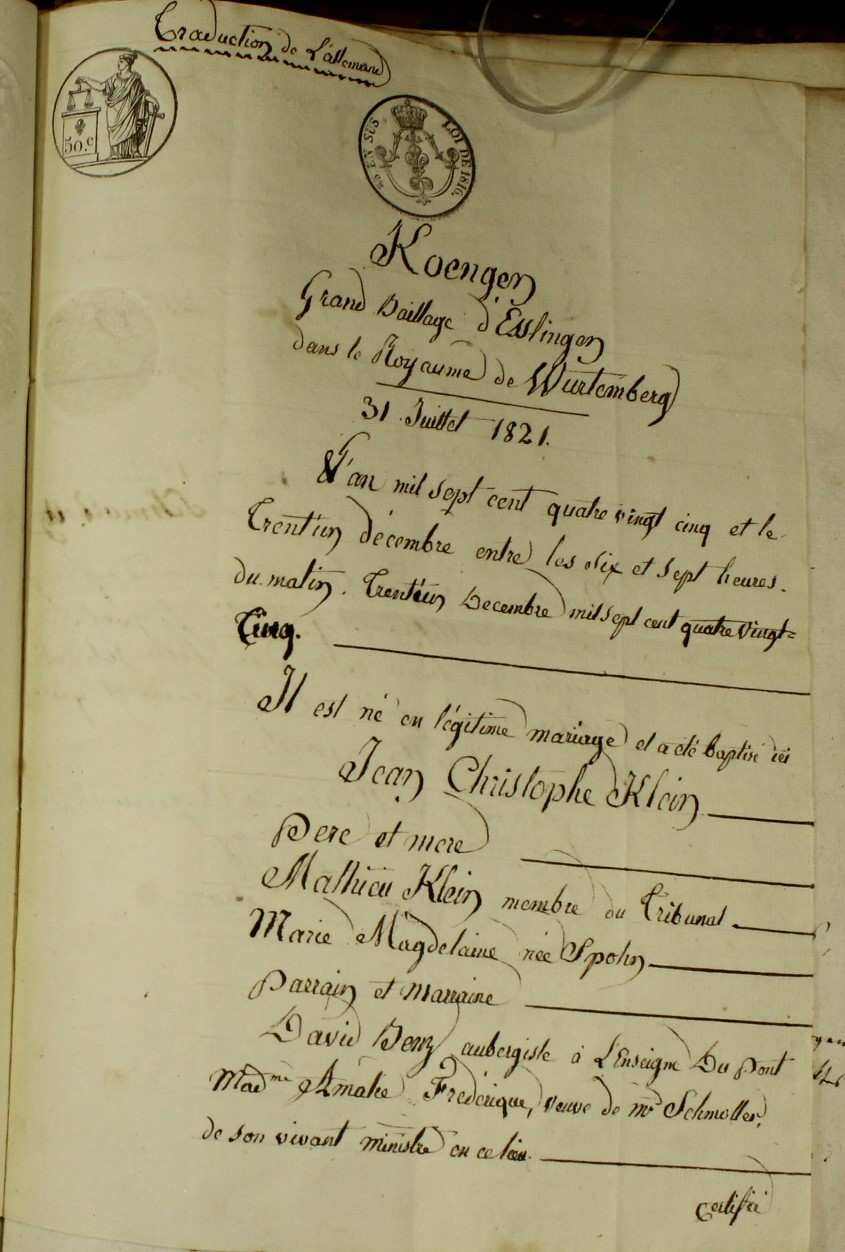 Traduction de L'allemand
50.c
EN SUS
LOI DE 1816.
Koengen
Grand Baillage d'Esslingen
dans le Royaume de Wurtemberg
31 Juillet 1821.
L'an mil sept cent quatre vingt cinq et le
Trent'un décembre entre les six et sept heures
du matin. Trent'un Decembre mil sept cent quatre vingt=
Cinq.
Il est né en légitime mariage et a été baptisé ici
Jean Christophe Klein
Pere et mere
Mathieu Klein membre du Tribunal
Marie Magdelaine née Spohn
Parrain et marraine
David Benz aubergiste à L'Enseigne Du Pont
Madme Amalie Frédérique, veuve de mr Schmoller,
de son vivant ministre en ce lieu.
certifié